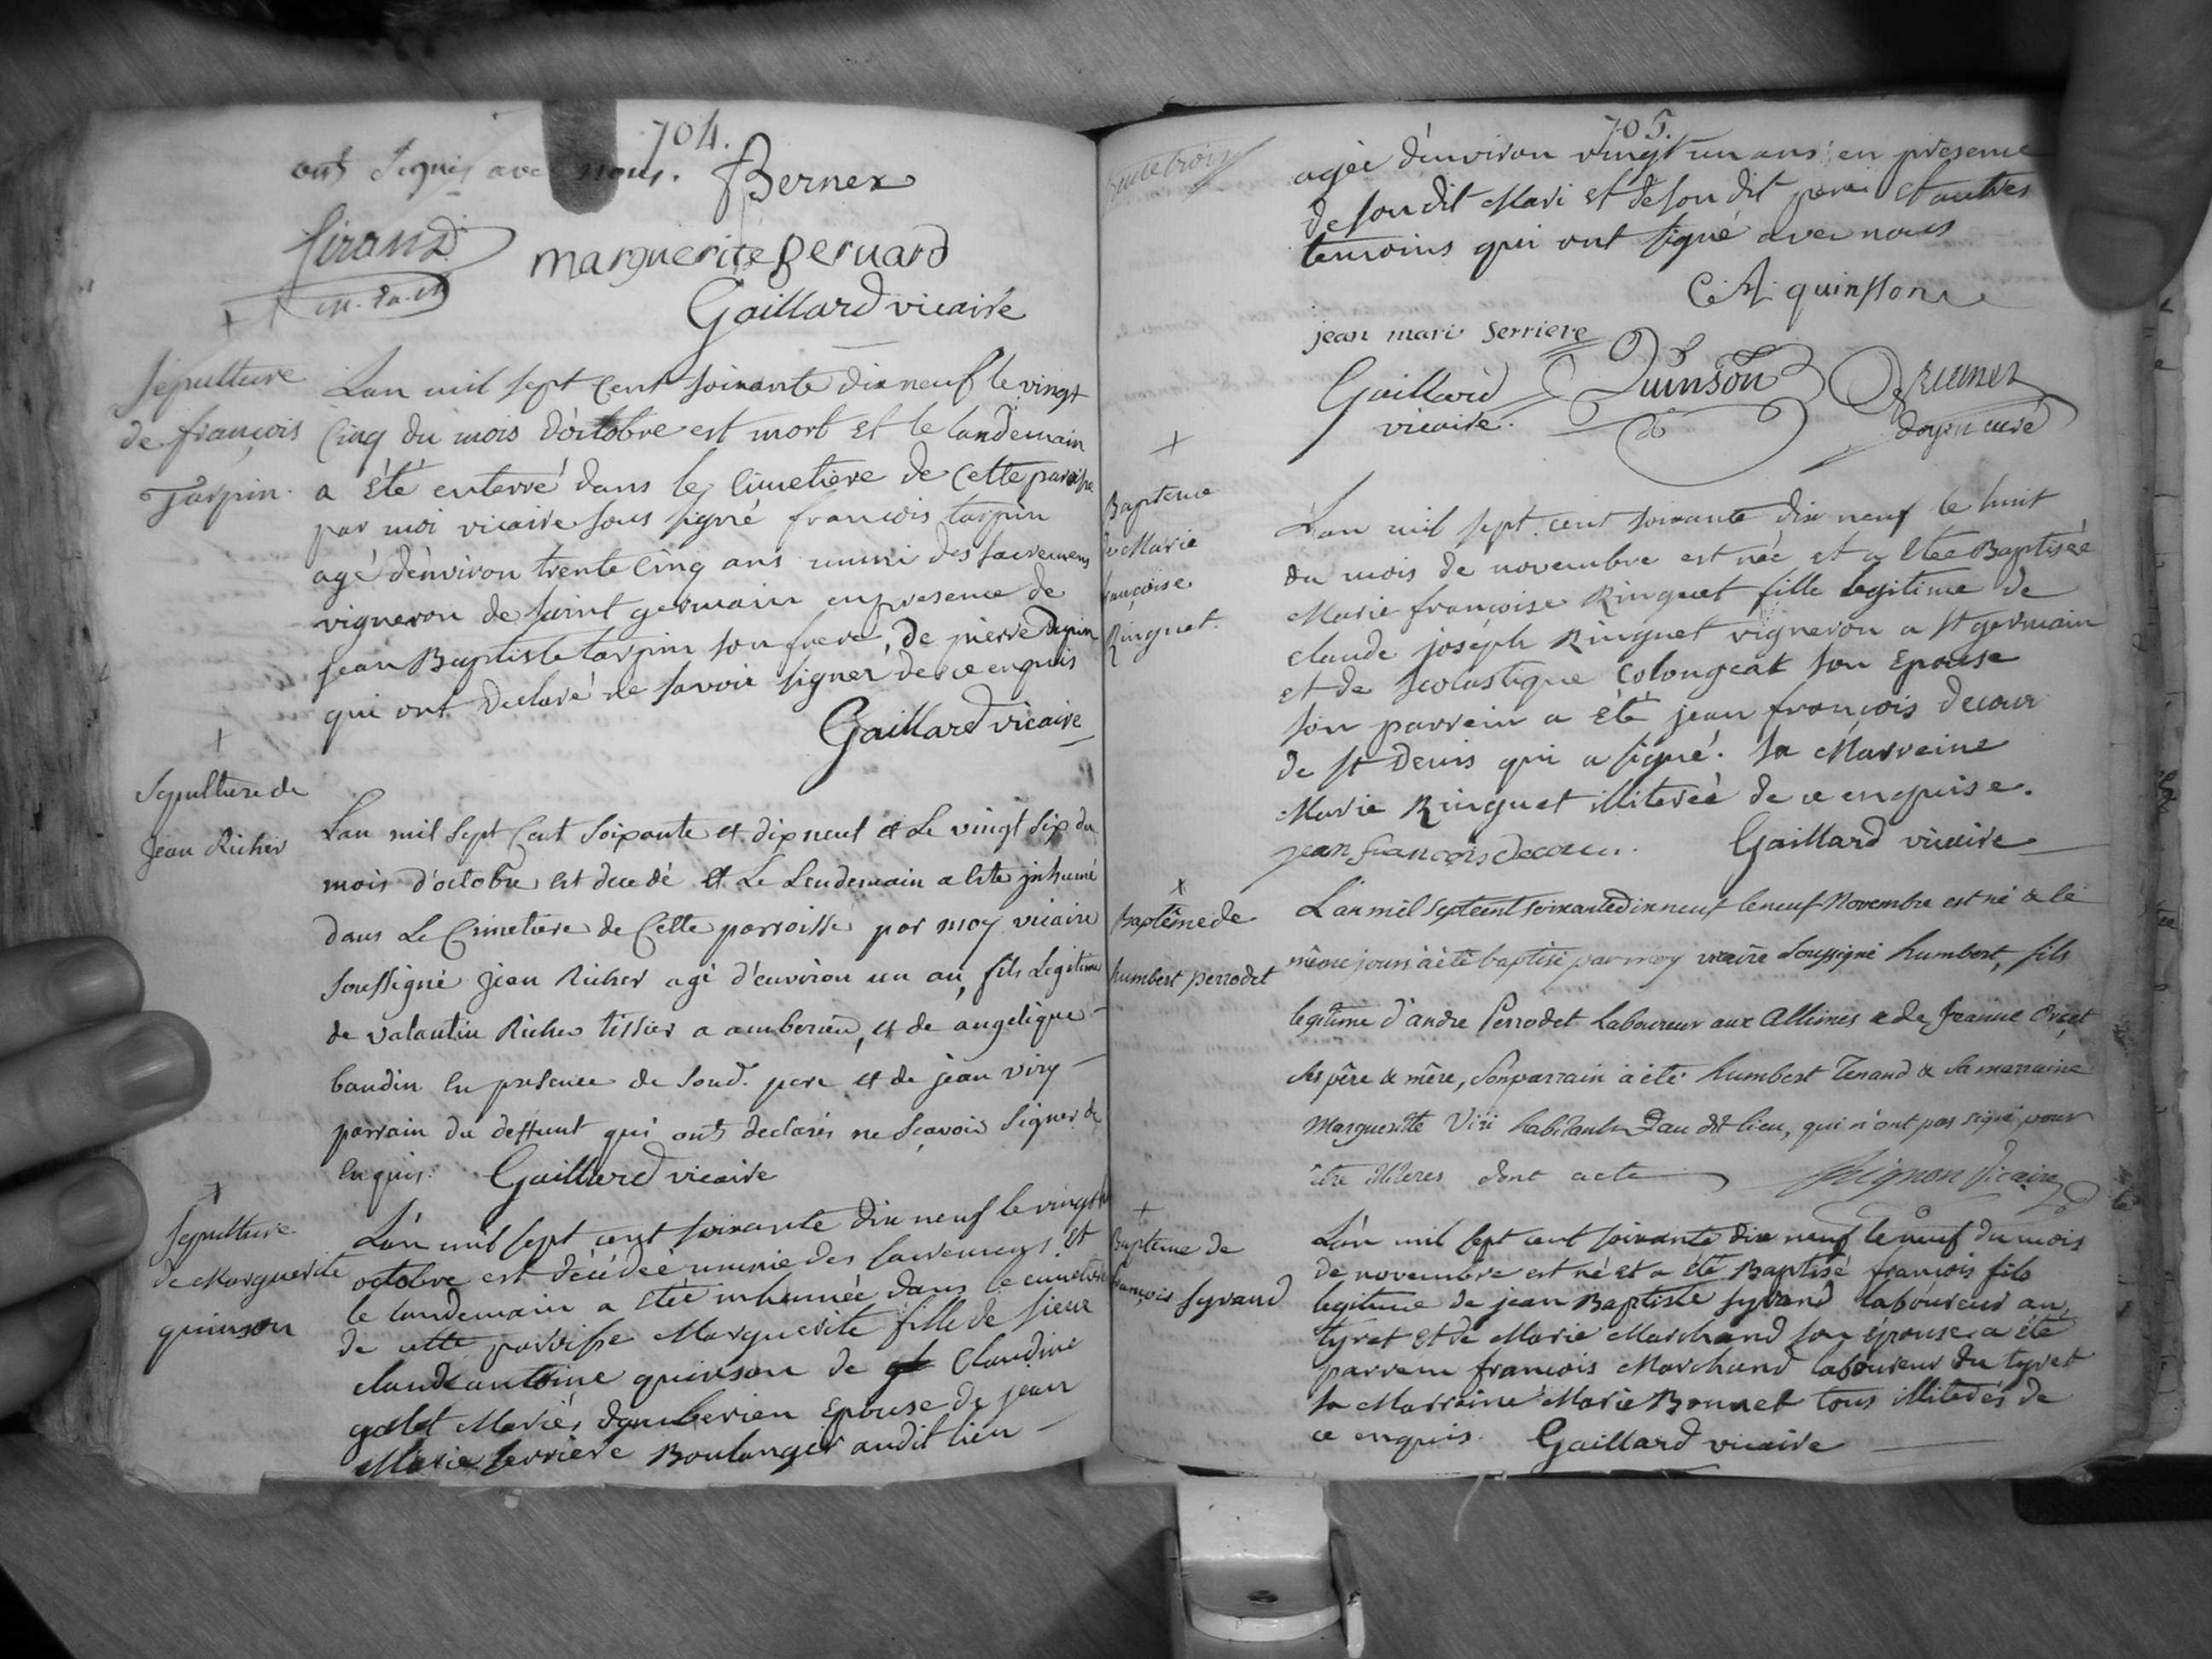 704.
ont Signés avec nous. Bernex
Sirand
marguerite Beruard
Gaillard vicaire
Sepulture
de françois
Tarpin.
Lan mil sept Cent soixante dix neuf le vingt
Cinq du mois d'octobre est mort et le landemain
a été enterré dans le Cimetiere de Cette paroisse
par moi vicaire sous signé francois tarpin
agé d'environ trente Cinq ans muni des sacremens
vigneron de saint germain en presence de
jean Baptiste tarpin son frere, de pierre
qui ont declaré ne savoir signer de ce enquis
Gaillard vicaire
Sepulture de
Jean Richer
Lan mil Sept Cent Soixante et dix neuf et Le vingt six du
mois d'octobre est decedé et Le Lendemain a esté jnhumé
dans Le Cimetiere de Cette parroisse par moy vicaire
soussigné Jean Richer agé d'environ un an, fils Legitime
de valantin Richer tissier a amberieu, et de angelique
baudin en presence de soud. pere et de jean viry
parrain du deffunt qui ont declarés ne sçavoir signer de
enquis. Gaillard vicaire
Sepulture
de Marguerite
quinson
L'an mil sept cent soixante dix neuf le vingt
octobre est décédée munie des sacremens et
le landemain a étée inhumée dans le cimetiere
de cette paroisse Marguerite fille de sieur
claude antoine quinson de Claudine
galet Mariés d'amberieu Epouse de jean
Marie serriere Boulanger audit lieu
705.
agée d'environ vingt un ans en presence
de son dit Mari et de son dit pere et autres
temoins qui ont signé avec nous
C. A. quinson
jean mari serriere
Gaillard Quinson
vicaire. doyen curé
Bapteme
de Marie
françoise
Ringuet.
Lan mil sept cent soixante dix neuf le huit
du mois de novembre est née et a étée Baptisée
Marie françoise Ringuet fille legitime de
claude joseph Ringuet vigneron a st germain
et de scolastique Colongeat son Epouse
son parrein a été jean françois decour
de st Denis qui a signé. sa Marreine
Marie Ringuet illiterée de ce enquise.
jean francois decour. Gaillard vicaire
Baptême de
humbert perrodet
L'an mil sept cent soixante dix neuf le neuf Novembre est né & le
même jours à été baptisé par moy vicaire soussigné humbert, fils
legitime d'andre Perrodet Laboureur aux Allimes & de Jeanne Orset
ses père & mère, son parrain à été humbert Tenand & sa marraine
Margueritte Viri habitants dau dit lieu, qui n'ont pas signé pour
être illiteres dont acte vicaire
Bapteme de
françois syrand
L'an mil sept cent soixante dix neuf le neuf du mois
de novembre est né et a été Baptisé françois fils
legitime de jean Baptiste syrand laboureur au
tyret et de Marie Marchand son épouse a été
parrein francois Marchand laboureur du tyret
sa Marraine Marie Bonnet tous illiterés de
ce enquis. Gaillard vicaire